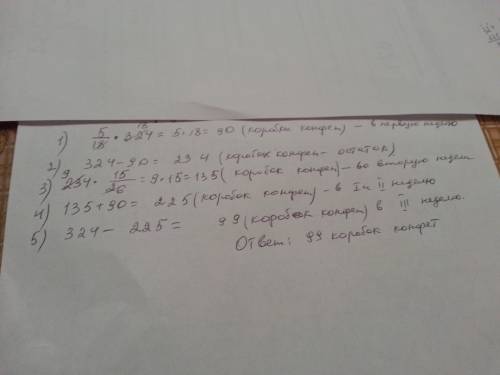 1) 5/18 · 324 = 5·18 = 90 (коробки конфет) – в первую неделю
2) 324 – 90 = 234 (коробки конфет – остаток)
3) 234 · 15/26 = 9·15 = 135 (коробок конфет) – во вторую недел
4) 135 + 90 = 225 (коробок конфет) – в I и II неделю
5) 324 – 225 = 99 (коробок конфет) в III неделю.
Ответ: 99 коробок конфет